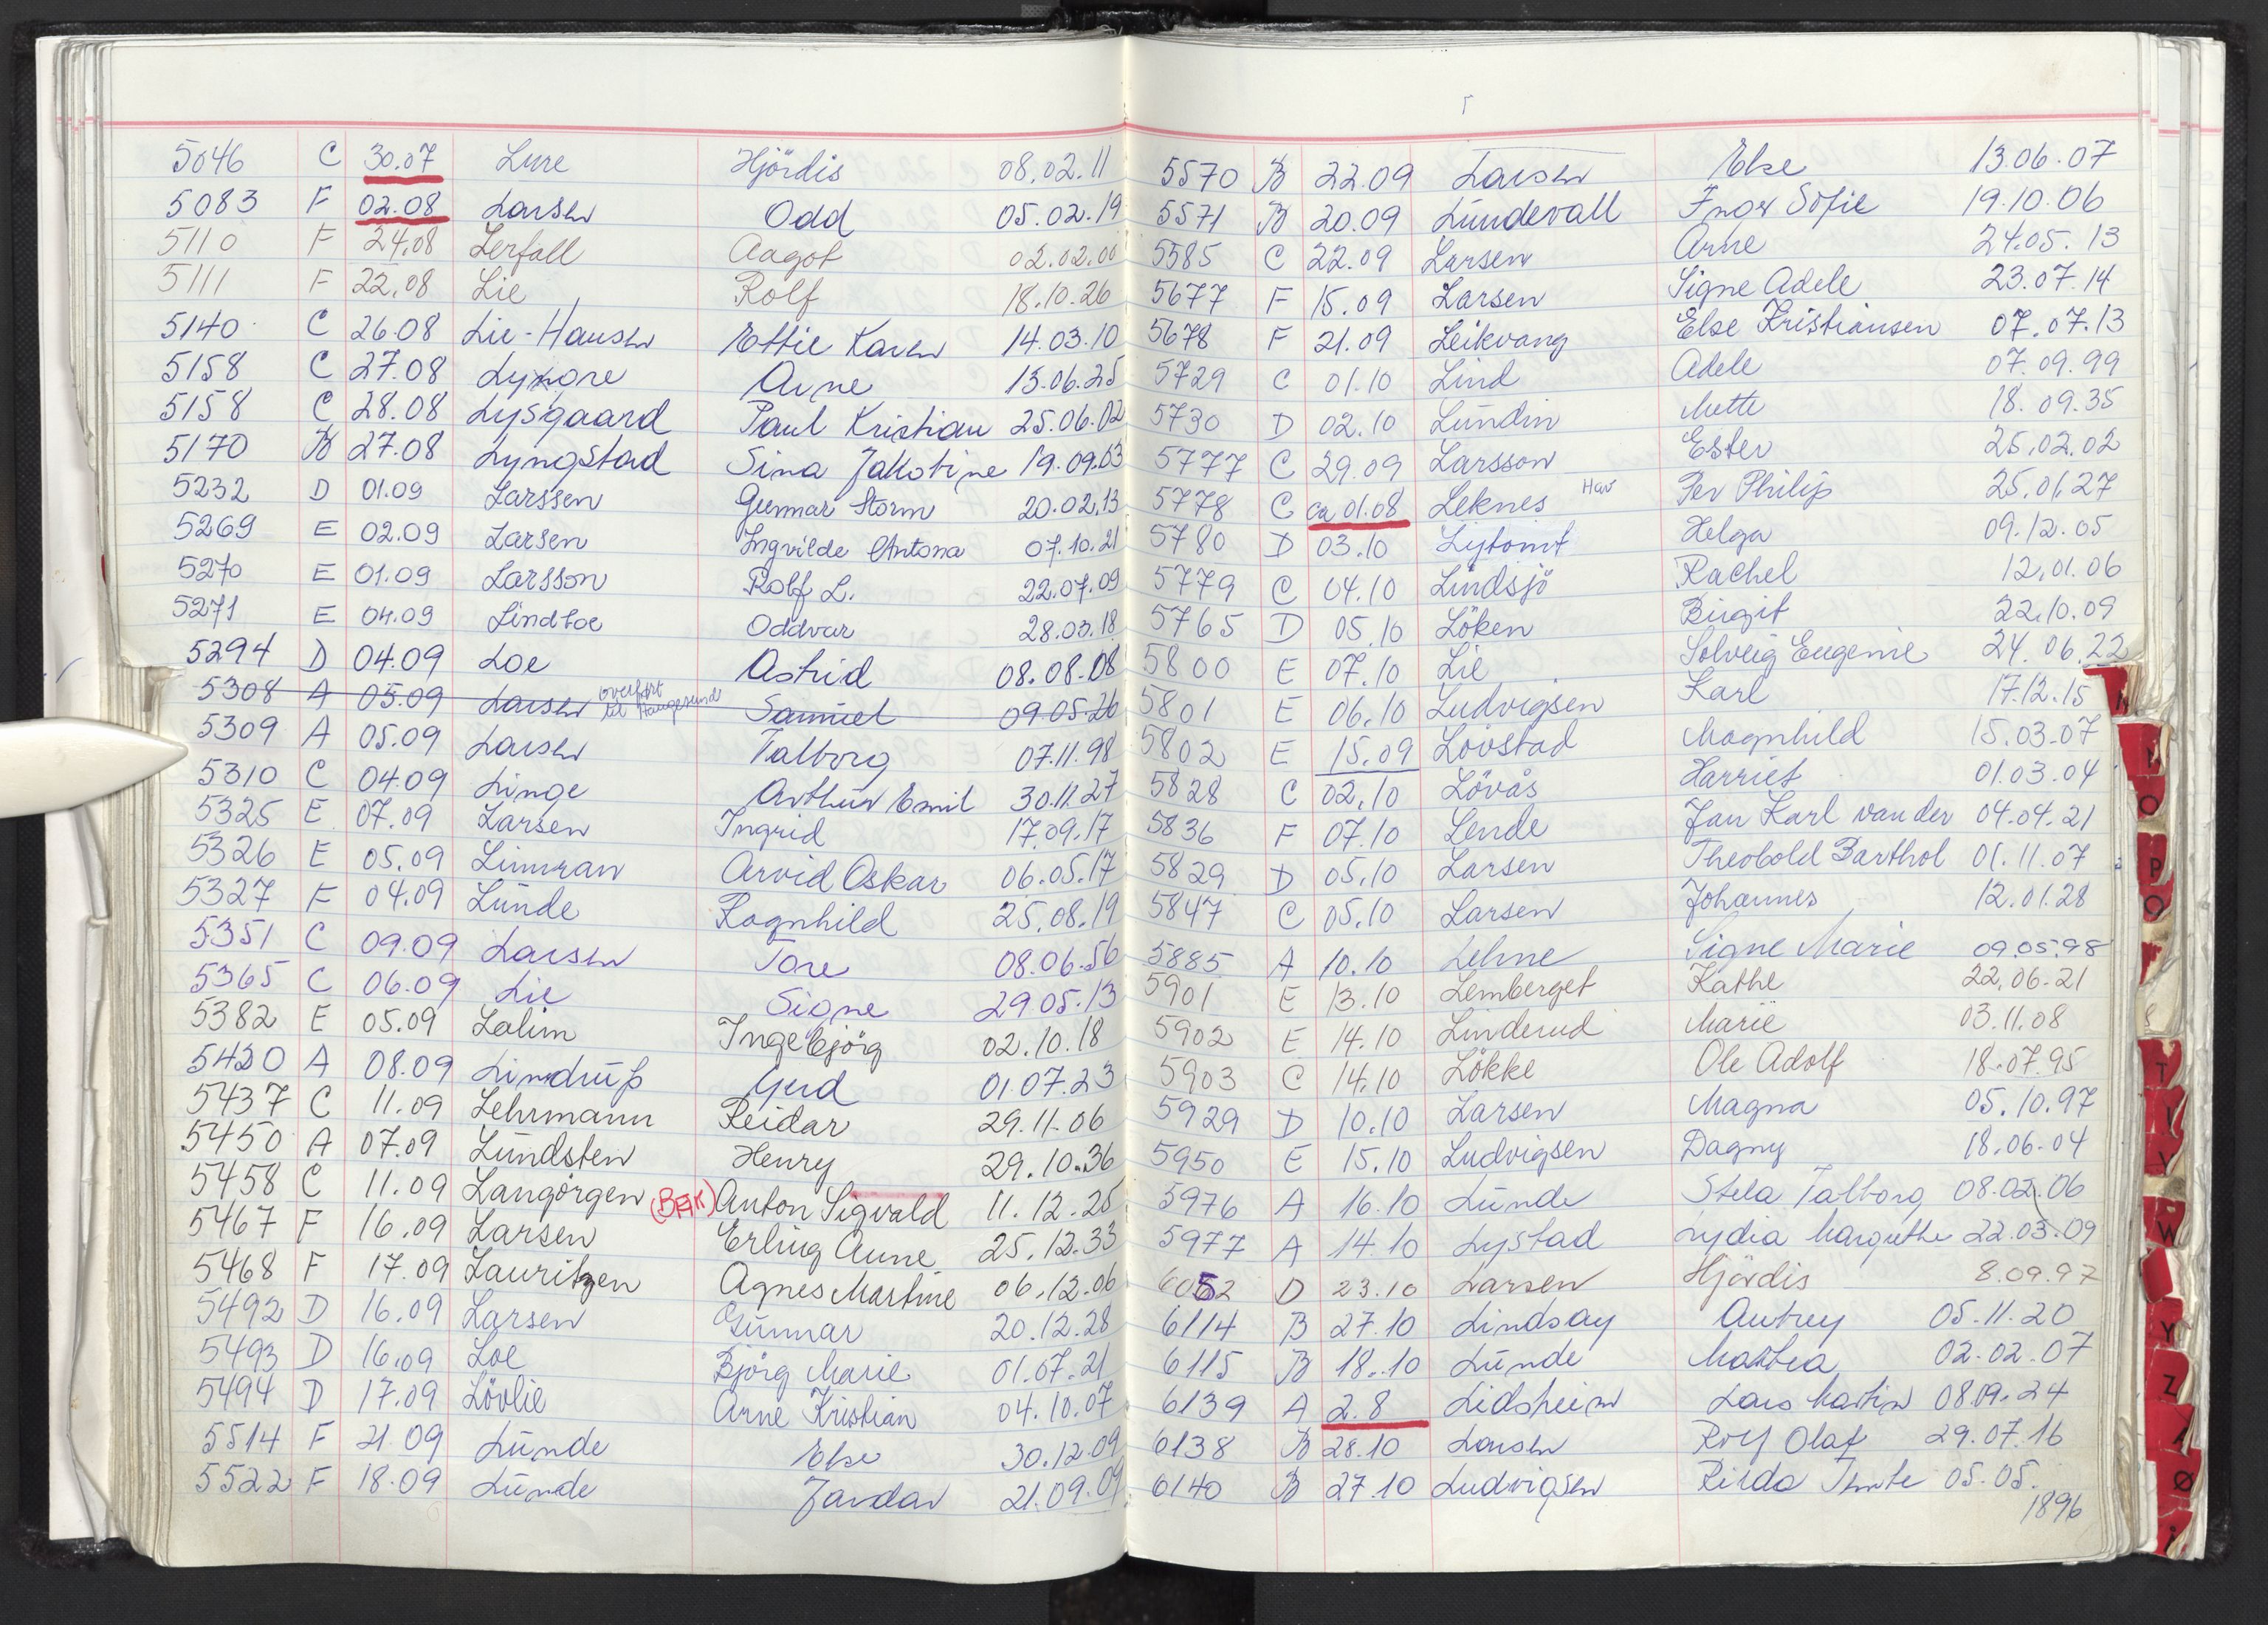 5046 C 30.07 Lure Hjördis 08.02.11
5083 F 02.08 Larsen Odd 05.02.19
5110 F 24.08 Lerfall Aagot 02.02.00
5111 F 22.08 Lie Rolf 18.10.26
5140 C 26.08 Lie-Hansen Ettie Karen 14.03.10
5158 C 27.08 Arne 13.06.25
5158 C 28.08 Lysgaard Paul Kristian 25.06.02
5170 B 27.08 Lyngstad Sina Jakobine 19.09.03
5232 D 01.09 Larssen Gunnar Storm 20.02.13
5269 E 02.09 Larsen Ingvilde Antona 07.10.21
5270 E 01.09 Larsson Rolf L. 22.07.09
5271 E 04.09 Lindtoe Oddvar 28.03.18
5294 D 04.09 Loe Astrid 08.08.08
5308 A 05.09 Larsen overfört til Haugesund Samuel 09.05.26
5309 A 05.09 Larsen Valborg 07.11.98
5310 C 04.09 Linge Arthur Emil 30.11.27
5325 E 07.09 Larsen Ingrid 17.09.17
5326 E 05.09 Limran Arvid Oskar 06.05.17
5327 F 04.09 Lunde Ragnhild 25.08.19
5351 C 09.09 Larsen Tore 08.06.56
5365 C 06.09 Lie Signe 29.05.13
5382 E 05.09 Lalim Ingebjörg 02.10.18
5420 A 08.09 Lindrup Gerd 01.07.23
5437 C 11.09 Lehrmann Reidar 29.11.06
5450 A 07.09 Lundsten Henry 29.10.36
5458 C 11.09 Langörgen (BAK) Anton Sigvald 11.12.25
5467 F 16.09 Larsen Erling Aune 25.12.33
5468 F 17.09 Lauritzen Agnes Martine 06.12.06
5492 D 16.09 Larsen Gunnar 20.12.28
5493 D 16.09 Loe Björg Marie 01.07.21
5494 D 17.09 Lövlie Arne Kristian 04.10.07
5514 F 21 09 Lunde Else 30.12.09
5522 F 18.09 Lunde Jardar 21.09.09
5570 B 22.09 Larsen Else 13.06.07
5571 B 20.09 Lundevall Inger Sofie 19.10.06
5585 C 22.09 Larsen Arne 24.05.13
5677 F 15.09 Larsen Signe Adele 23.07.14
5678 F 21.09 Leikvang Else Kristiansen 07.07.13
5729 C 01.10 Lind Adele 07.09.99
5730 D 02.10 Lundin Mette 18.09.35
5777 C 29.09 Larsson Ester 25.02.02
5778 C ca 01.08 Leknes Hav Per Philip 25.01.27
5780 D 03.10 Helga 09.12.05
5779 C 04.10 Lindsjö Rachel 12.01.06
5765 D 05.10 Löken Birgit 22.10.09
5800 E 07.10 Lie Solveig Eugenie 24.06.22
5801 E 06.10 Ludvigsen Karl 17.12.15
5802 E 15.09 Lövstad Magnhild 15.03.07
5828 C 02.10 Lövås Harriet 01.03.04
5836 F 07.10 Lende Jan Karl van der 04.04.21
5829 D 05.10 Larsen Theobold Barthol 01.11.07
5847 C 05.10 Larsen Johannes 12.01.28
5885 A 10.10 Lehne Signe Marie 09.05.98
5901 E 13.10 Lemberget Käthe 22.06.21
5902 E 14.10 Linderud Marie 03.11.08
5903 C 14.10 Lökke Ole Adolf 18.07.95
5929 D 10.10 Larsen Magna 05.10.97
5950 E 15.10 Ludvigsen Dagny 18.06.04
5976 A 16.10 Lunde Stela Valborg 08.02.06
5977 A 14.10 Lystad Lydia Margrethe 22.03.09
6052 D 23.10 Larsen Hjördis 8.09.97
6114 B 27.10 Lindsay Autrey 05.11.20
6115 B 18.10 Lunde Martea 02.02.07
6139 A 2.8 Lidsheim Lars Martin 08.09.24
6138 B 28.10 Larsen Rolf Olaf 29.07.16
6140 B 27.10 Ludvigsen 05.05.
1896
O
P
Q
S
T
V
W
Y
Z
Ø